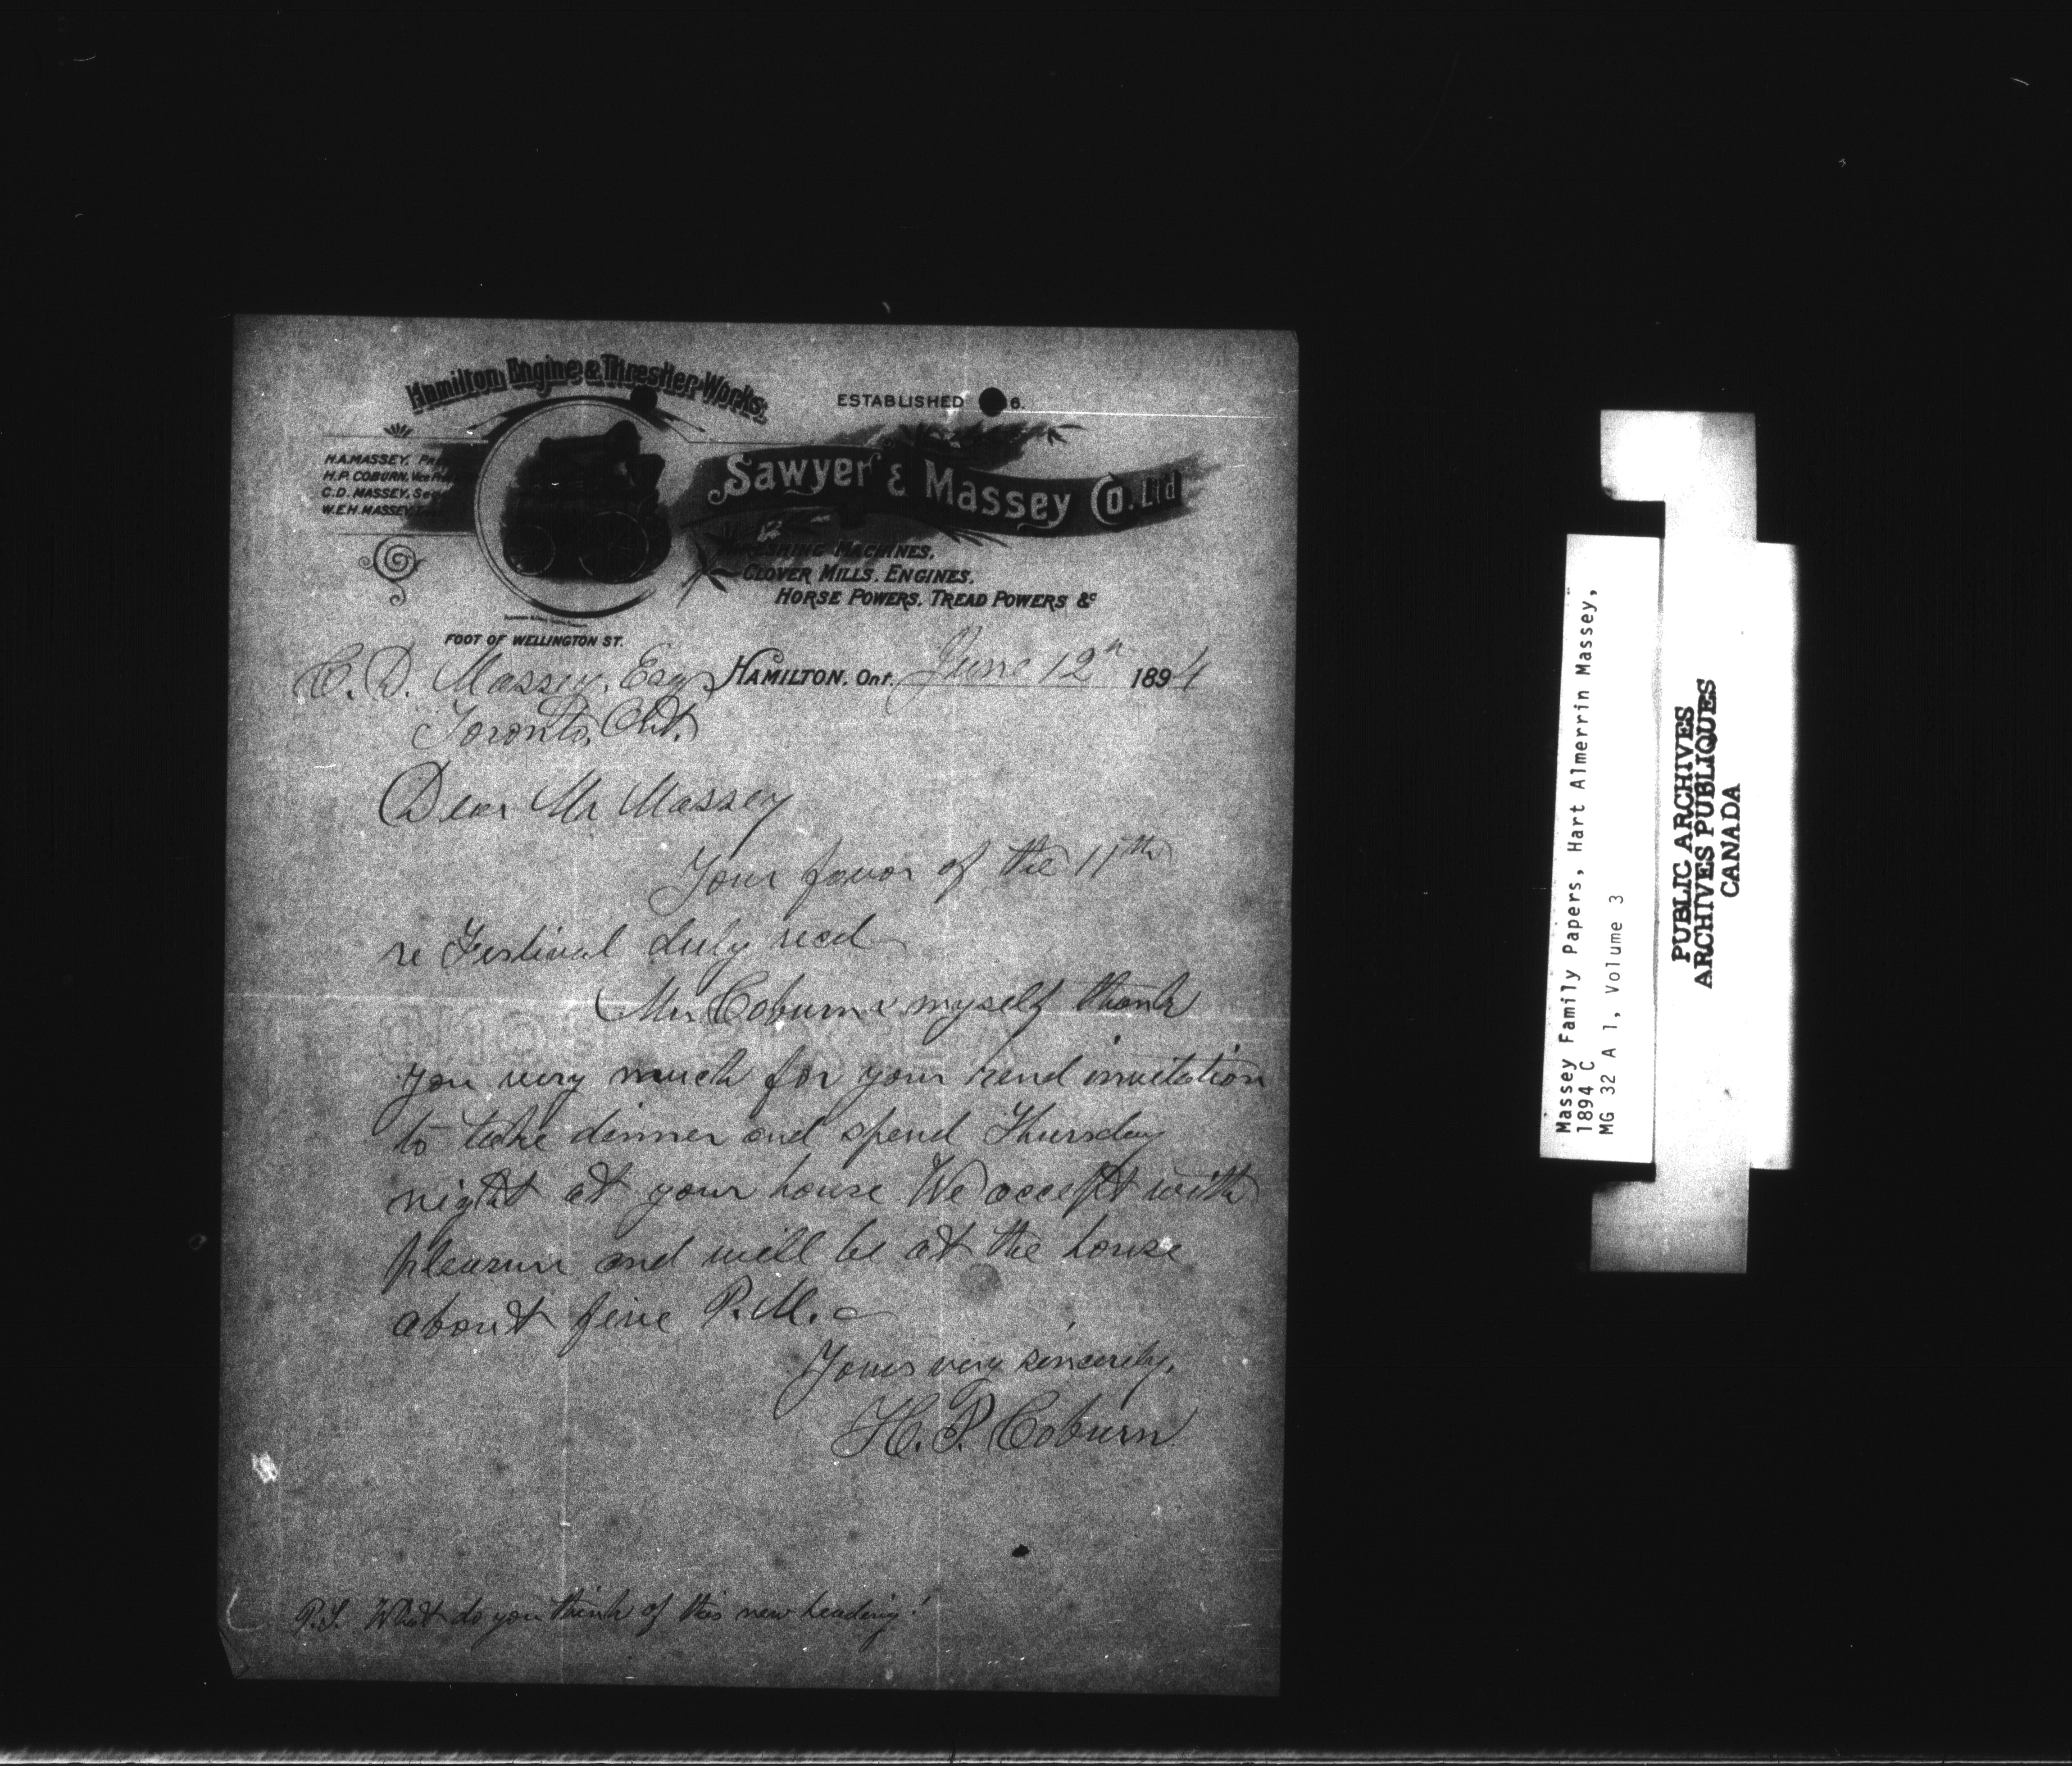 Hamilton Engine & Thresher Works.
ESTABLISHED 6.
H.A. MASSEY, Pre
H.P. COBURN, Vice Pres
C.D. MASSEY, Sec
W.E.H. MASSEY,
Sawyer & Massey Co. Ltd
THRESHING MACHINES,
CLOVER MILLS, ENGINES,
HORSE POWERS, TREAD POWERS &c
FOOT OF WELLINGTON ST.
C. D. Massey, Esq HAMILTON, Ont. June 12th 1894
Toronto, Ont.
Dear Mr Massey
Your favor of the 11th
re Festival duly recd
Mrs. Coburn & myself thank
you very much for your kind invitation
to take dinner and spend Thursday
night at your house We accept with
pleasure and will be at the house
about five P.M.
Yours very sincerely,
H. P. Coburn
P.S. What do you think of this new heading!
Massey Family Papers, Hart Almerrin Massey,
1894 C
MG 32 A 1, Volume 3
PUBLIC ARCHIVES
ARCHIVES PUBLIQUES
CANADA